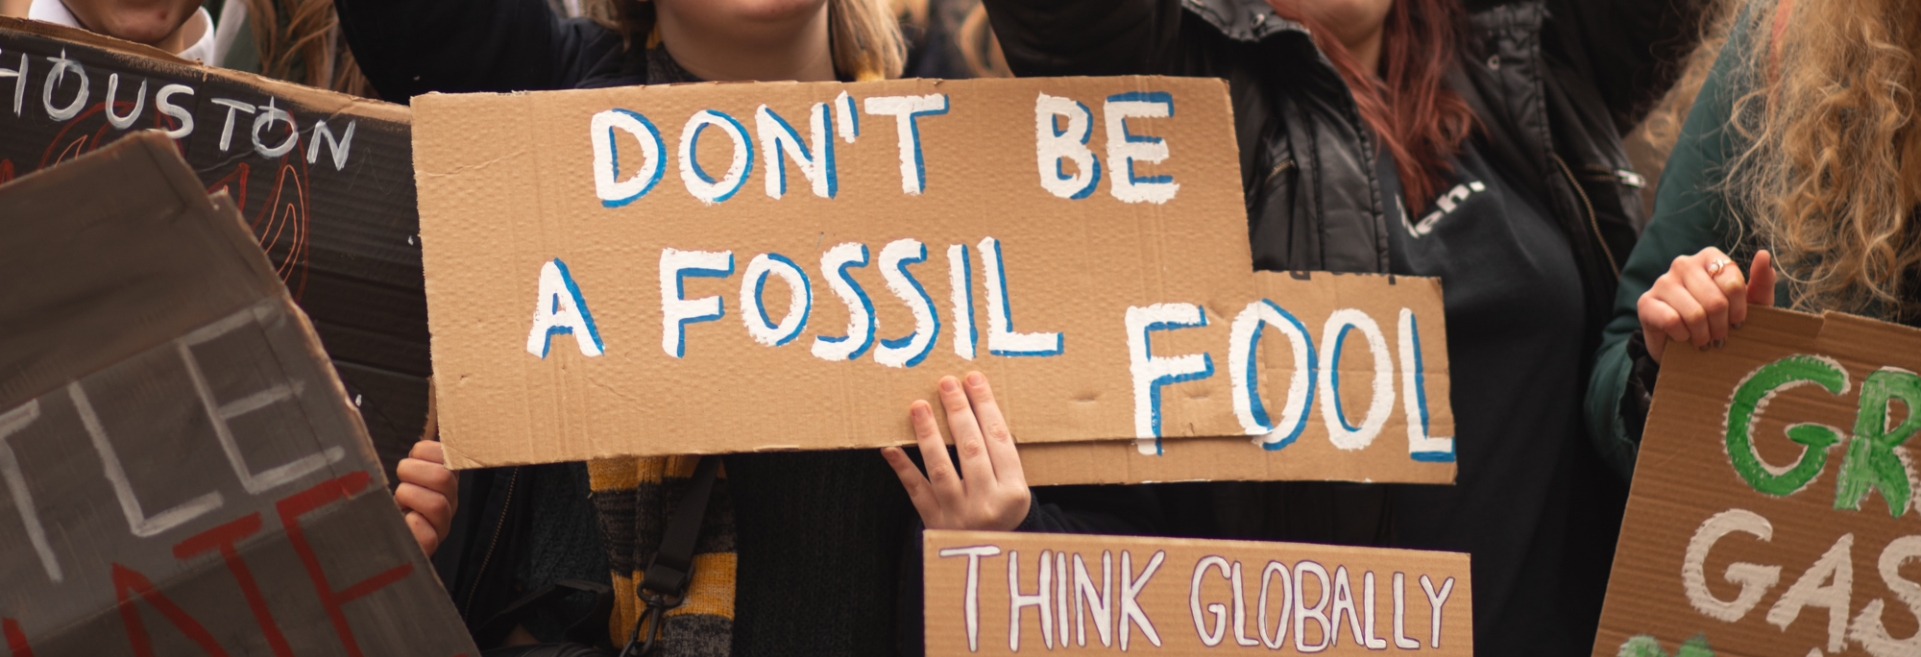 HOUSTON
DON'T BE
A FOSSIL FOOL
THINK GLOBALLY
GAS